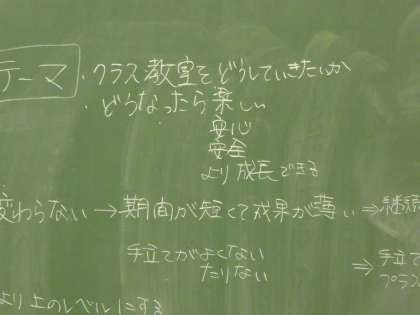 テーマ ・クラス教室をどうしていきたいか
・どうなったら楽しい
安心
安全
より成長できる
変わらない→期間が短くて成果が薄い⇒継続
手立てがよくない
たりない ⇒手立て
プラス
より上のレベルにする